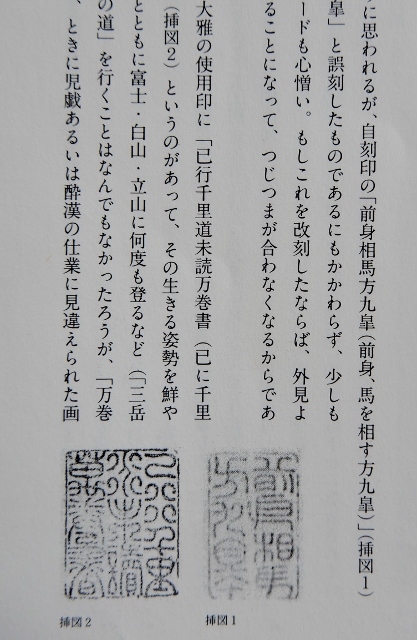 うに思われるが、自刻印の「前身相馬方九皐(前身、馬を相す方九皐)」(挿図1)
皐」と誤刻したものであるにもかかわらず、少しも
ードも心憎い。もしこれを改刻したならば、外見よ
ることになって、つじつまが合わなくなるからであ
大雅の使用印に「已行千里道未読万巻書(已に千里
(挿図2)というのがあって、その生きる姿勢を鮮や
とともに富士・白山・立山に何度も登るなど(「三岳
の道」を行くことはなんでもなかったろうが、「万巻
、ときに児戯あるいは酔漢の仕業に見違えられた画
前身相馬
方九皐
挿図1
挿図2